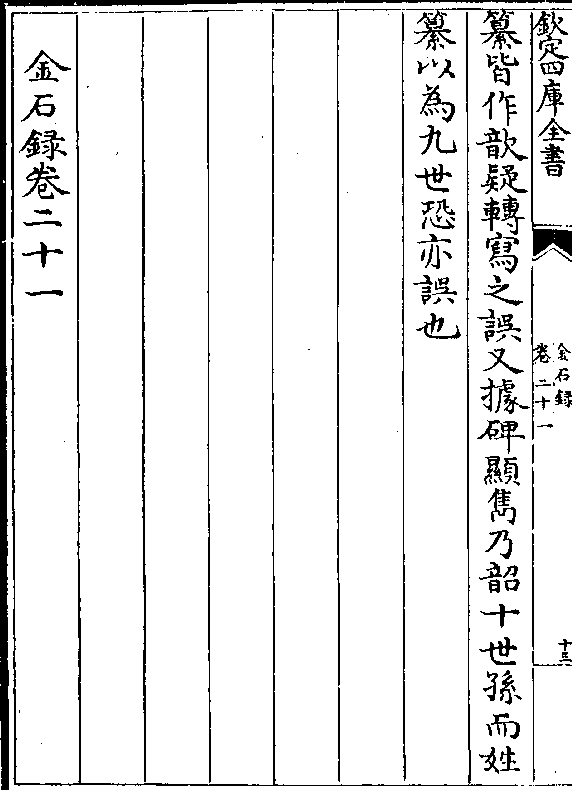 欽定四庫全書
金石録
卷二十一
十三
纂皆作歆疑轉寫之誤又據碑顯雋乃韶十世孫而姓
纂以為九世恐亦誤也
金石録卷二十一